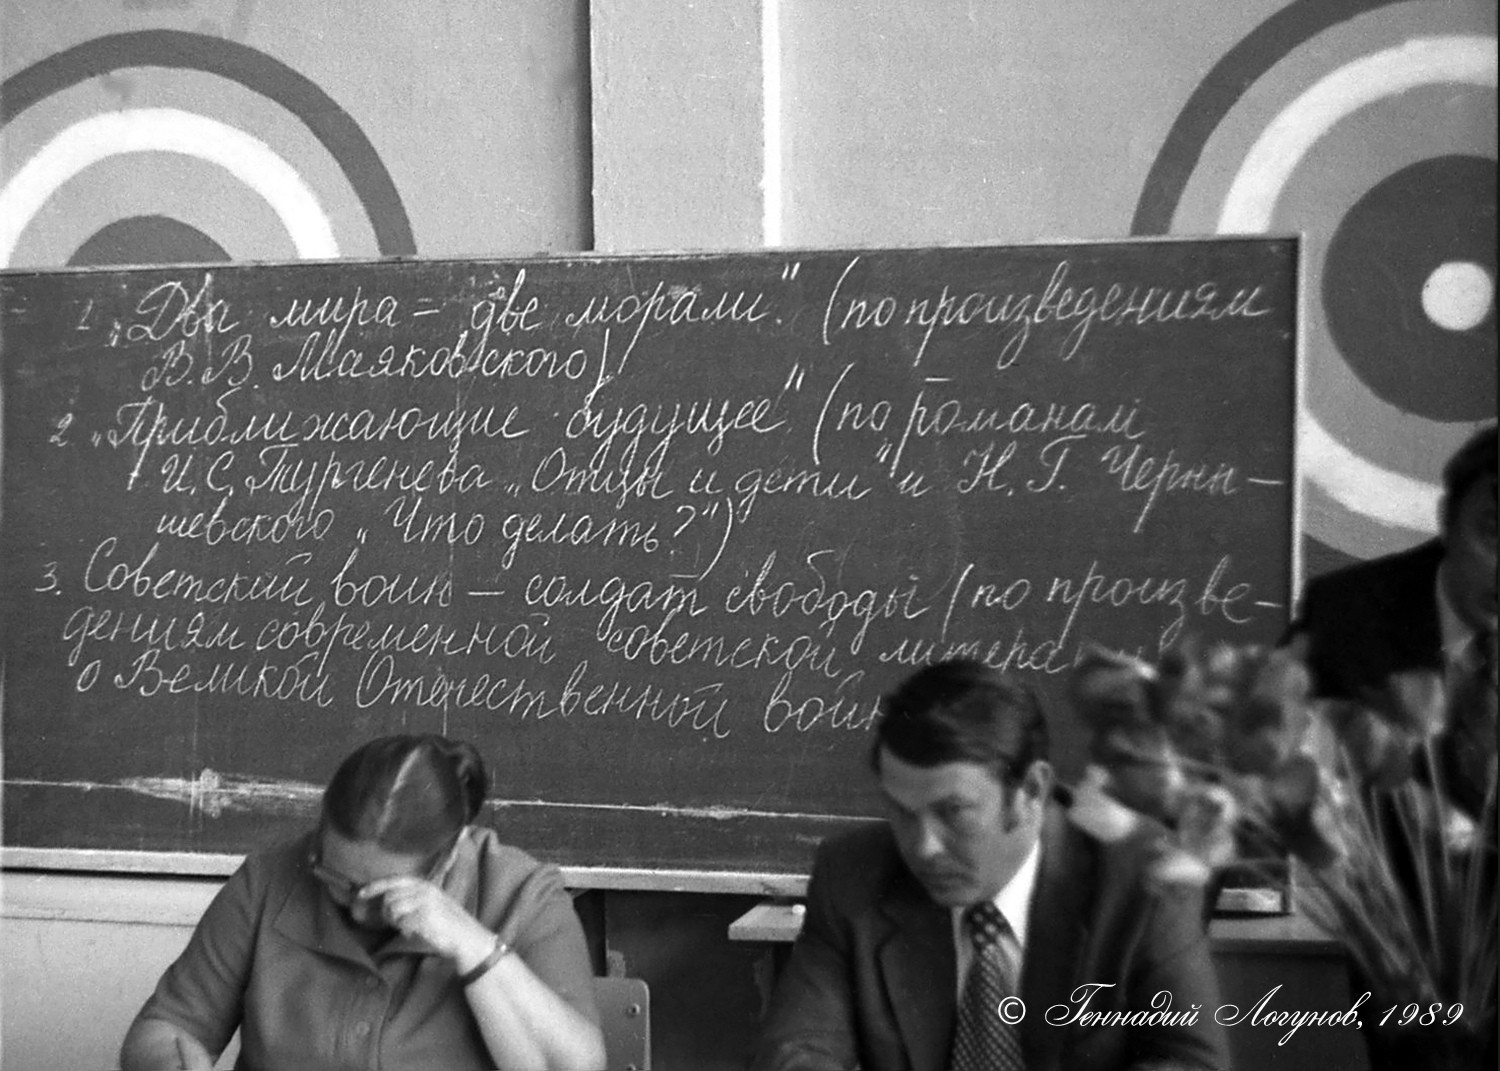 1 „Два мира – две морали." (по произведениям
В. В. Маяковского)
2 „Приближающие будущее" (по романам
И. С. Тургенева „Отцы и дети" и Н. Г. Черны–
шевского „Что делать?")
3. Советский воин – солдат свободы (по произве–
дениям современной советской
о Великой Отечественной
© Геннадий Логунов, 1989